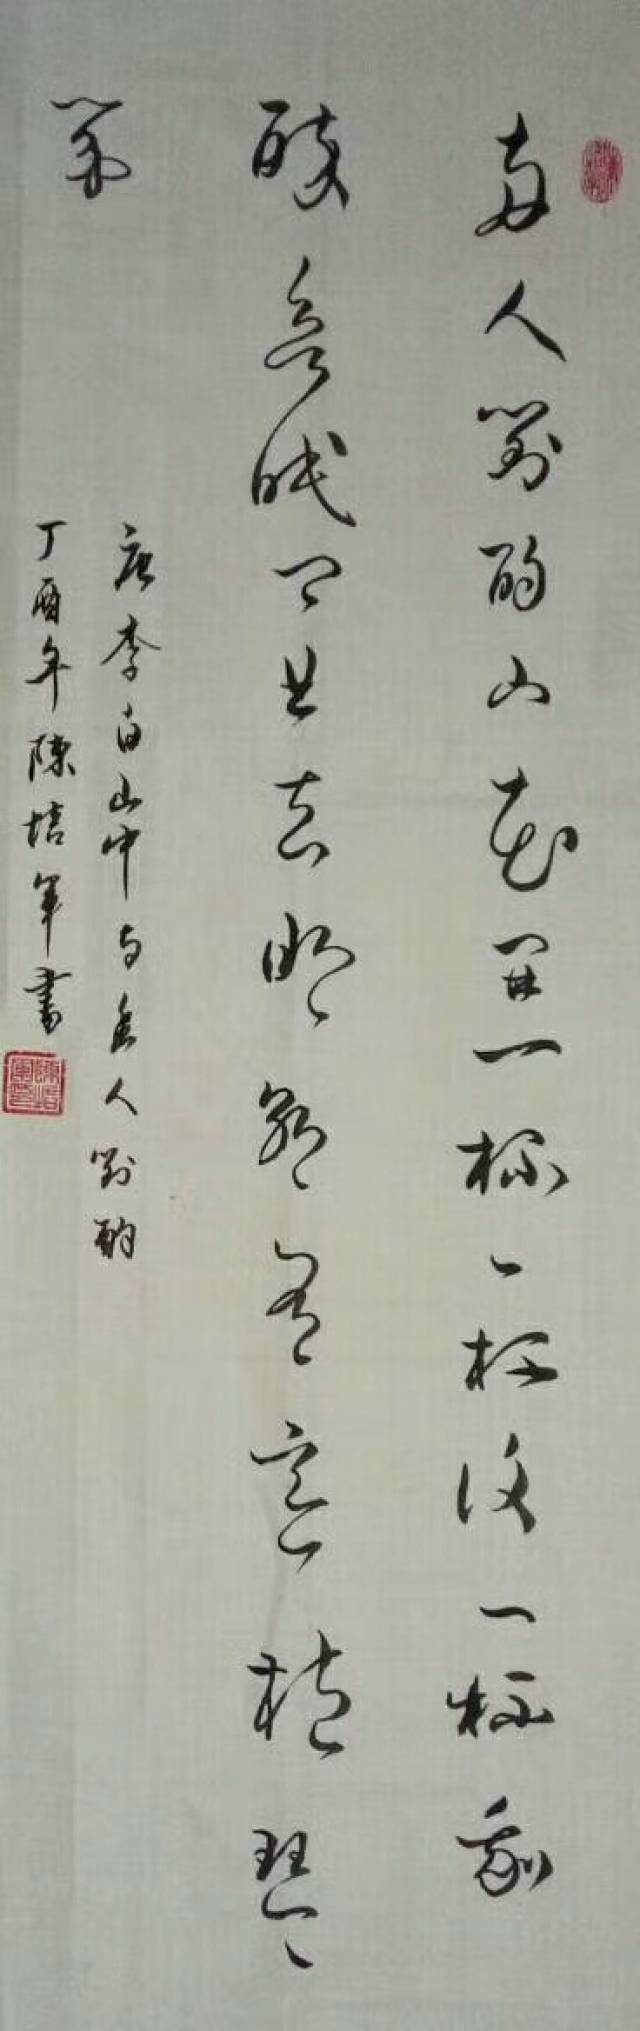 两人對酌山花開一杯一杯復一杯我
醉欲眠卿且去明朝有意抱琴
來
唐李白山中与幽人對酌
丁酉年陳培軍書